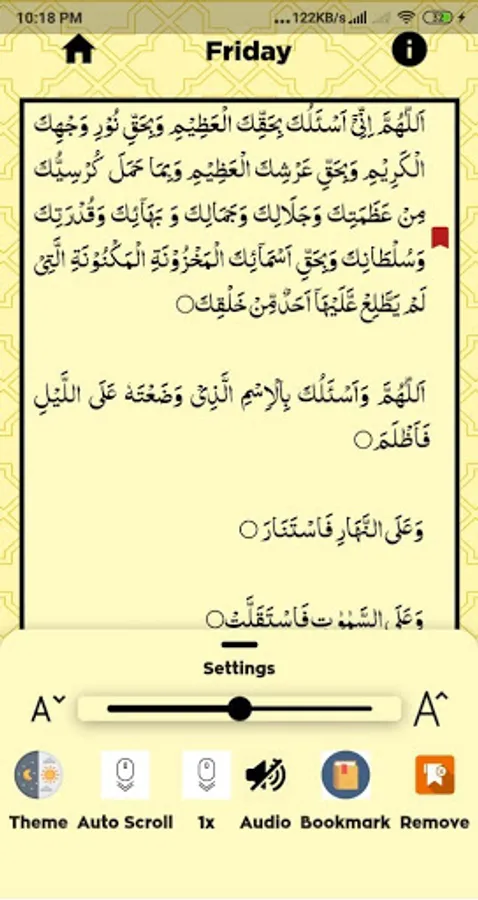 10:18 PM ...122KB/s 32
Friday
اَللّٰهُمَّ اِنِّىْٓ اَسْئَلُكَ بِحَقِّكَ الْعَظِيْمِ وَبِحَقِّ نُوْرِ وَجْهِكَ
الْكَرِيْمِ وَبِحَقِّ عَرْشِكَ الْعَظِيْمِ وَبِمَا حَمَلَ كُرْسِيُّكَ
مِنْ عَظَمَتِكَ وَجَلَالِكَ وَجَمَالِكَ وَ بَهَآئِكَ وَقُدْرَتِكَ
وَسُلْطَانِكَ وَبِحَقِّ اَسْمَآئِكَ الْمَخْزُوْنَةِ الْمَكْنُوْنَةِ الَّتِىْ
لَمْ يَطَّلِعْ عَلَيْهَآ اَحَدٌ مِّنْ خَلْقِكَ○
اَللّٰهُمَّ وَاَسْئَلُكَ بِالْاِسْمِ الَّذِىْ وَضَعْتَهٗ عَلَى اللَّيْلِ
فَاَظْلَمَ○
وَعَلَى النَّهَارِ فَاسْتَنَارَ○
وَعَلَى السَّمٰوٰتِ فَاسْتَقَلَّتْ○
Settings
A A
Theme Auto Scroll 1x Audio Bookmark Remove